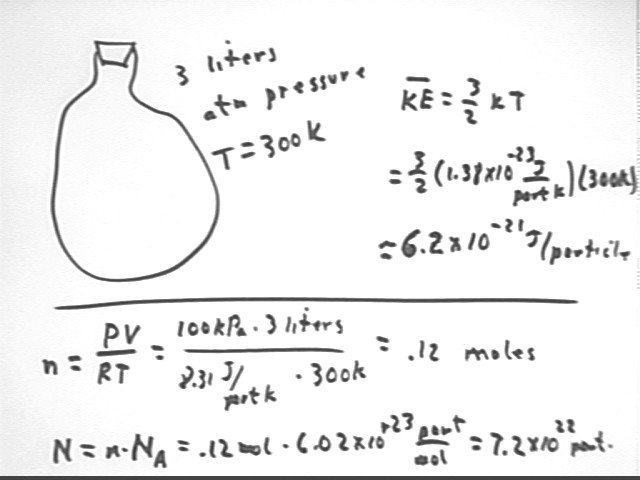 3 liters
atm pressure
T = 300k
K̅E̅ = 3/2 kT
= 3/2 (1.38x10^-23 J/part k)(300k)
= 6.2 x 10^-21 J/particle
n = PV/RT = 100kPa · 3 liters / 8.31 J/part k · 300k = .12 moles
N = n·N_A = .12 mol · 6.02x10^+23 part/mol = 7.2x10^22 part.